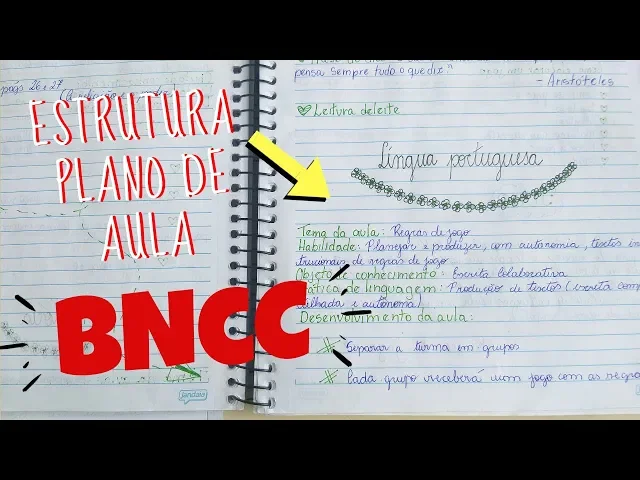 págs 26 e 27
ESTRUTURA
PLANO DE
AULA
BNCC
jandaia
pensa sempre tudo o que diz"
- Aristóteles
Leitura deleite
Língua portuguesa
Tema da aula: Regras de jogo
Habilidade: Planejar e produzir, com autonomia, textos ins
trucionais de regras de jogo
Objeto de conhecimento: Escrita colaborativa
Prática de linguagem: Produção de textos (escrita comp
tilhada e autônoma)
Desenvolvimento da aula:
Separar a turma em grupos
Cada grupo receberá um jogo com as regra
jandaia